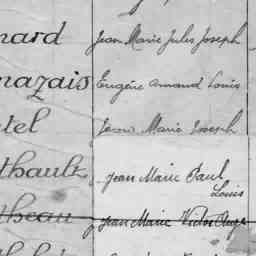 nard Jean Marie Jules Joseph
nazais Eugène Armand Louis
tel Jean Marie Joseph
thault Jean Marie Paul
Louis
theau Jean Marie Victor Ange